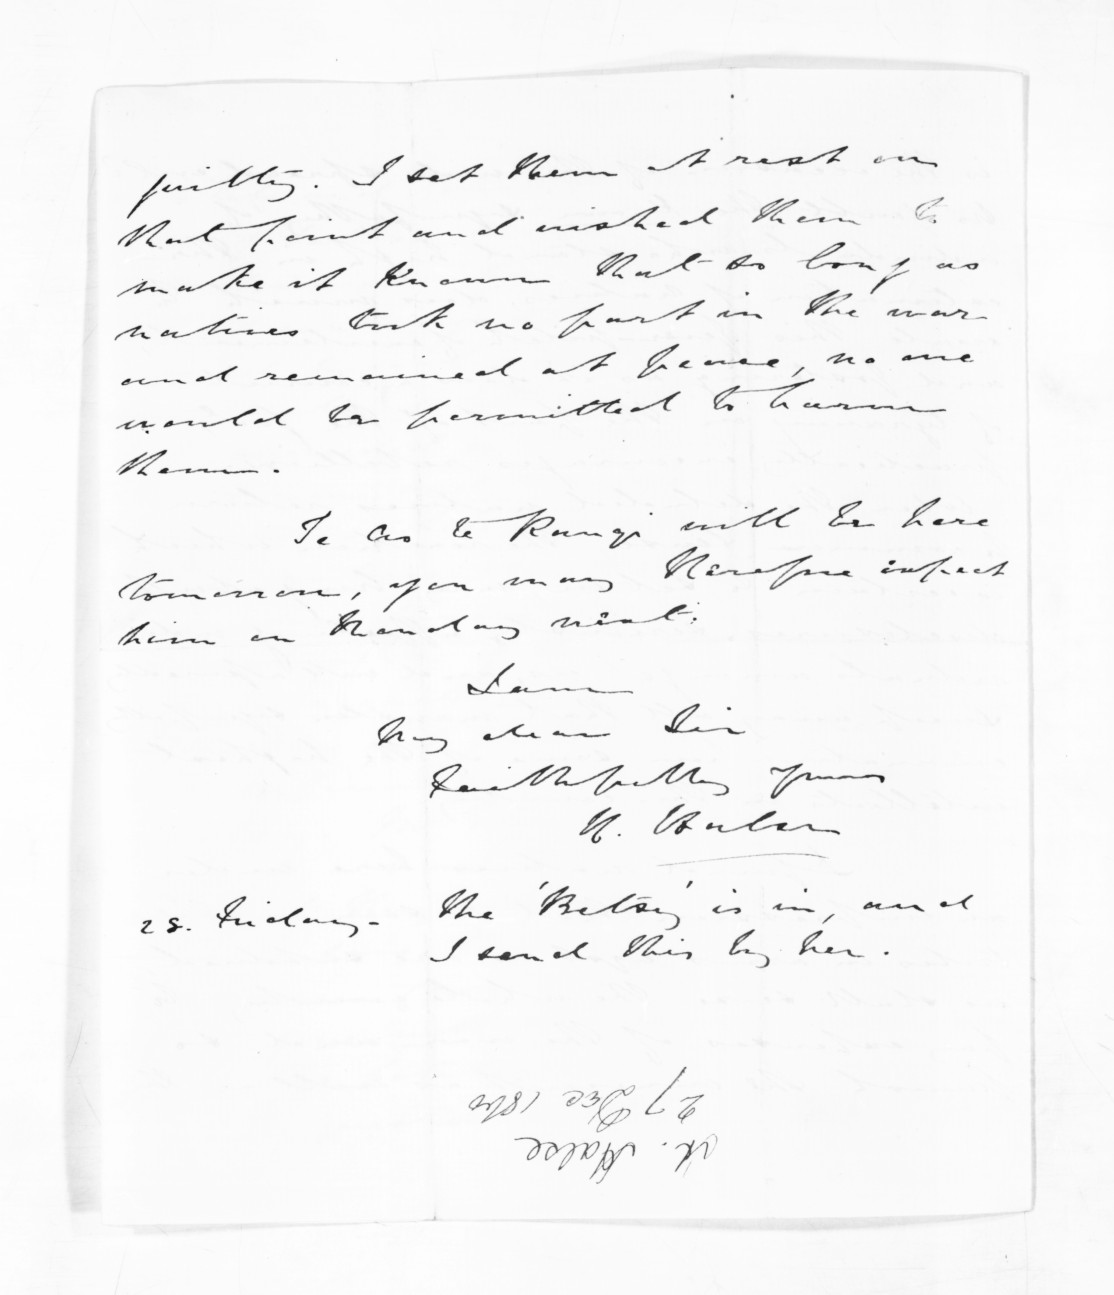 guilty. I set them at rest on
that point and wished them to
make it known that so long as
natives took no part in the war
and remained at peace, no one
would be permitted to harm
them.
Te Ao te Rangi will be here
tomorrow, you may therefore expect
him on Monday next.
I am
My dear Sir
Faithfully yours
H. Halse
28. Friday - The 'Betsy' is in, and
I send this by her.
H. Halse
27 Dec 1860